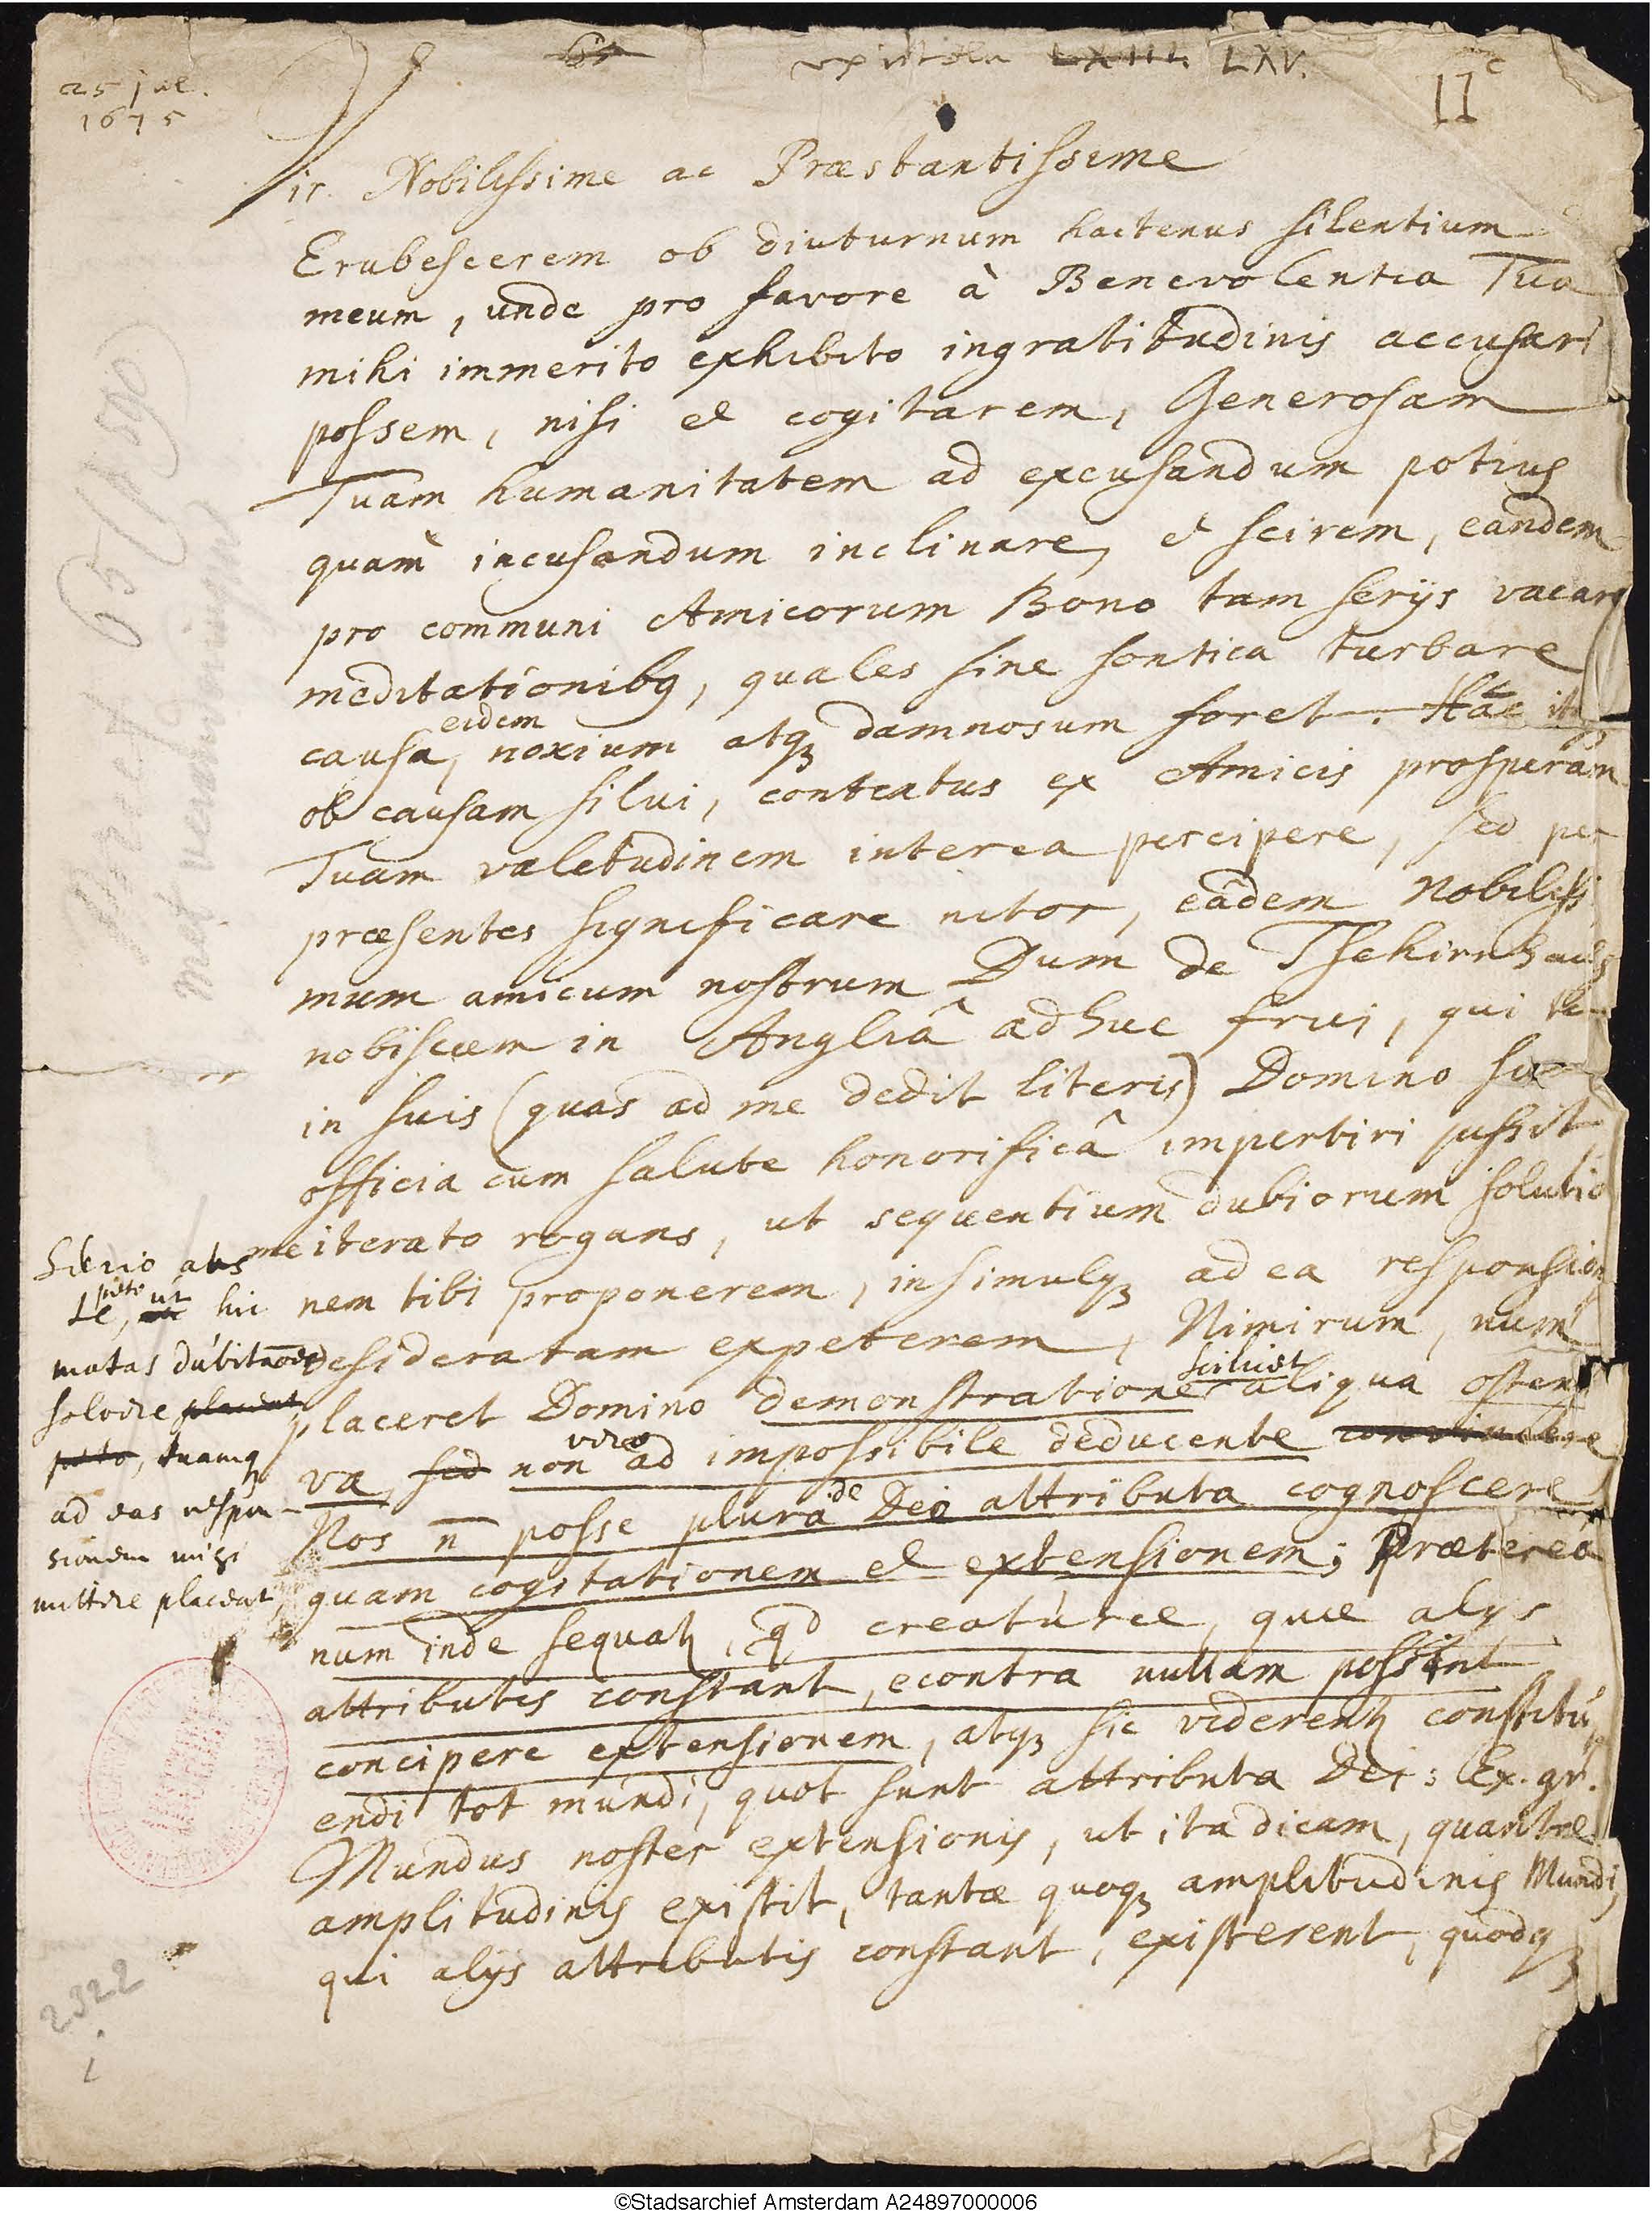 25 jul.
1675
65
epistola LXIII. LXV.
II c
Vir Nobilissime ac Præstantissime
Erubescerem ob diuturnum hactenus silentium
meum, unde pro favore à Benevolentia Tua
mihi immerito exhibito ingratitudinis accusari
possem, nisi et cogitarem, Generosam
Tuam humanitatem ad excusandum potius
quam incusandum inclinare, et scirem, eandem
pro communi Amicorum Bono tam serijs vacare
meditationibq, quales sine sontica turbare
eidem
causa, noxium atq damnosum foret. Hac itaq
ob causam silui, contentus ex Amicis prosperam
Tuam valetudinem interea percipere, sed per
præsentes significare nitor, eâdem Nobilissi
mum amicum nostrum Dum de Tschirnhaus
nobiscum in Angliâ adhuc frui, qui ter
in suis (quas ad me dedit literis) Domino sua
officia cum salute honorificâ impertiri jussit
me iterato rogans, ut sequentium dubiorum solutio
nem tibi proponerem, insimulq ad ea responsion
desideratam expeterem, Nimirum, num
scilicet
placeret Domino demonstratione aliqua ostensi
vero
va, sed non ad impossibile deducente convincere
de
Nos n̄ posse plura Dei attributa cognoscere
quam cogitationem et extensionem; Prætereà
num inde sequatʒ, qd creaturæ, quæ alijs
attributis constant, econtra nullam possint
concipere extensionem, atqʒ sic viderentʒ constitu
endi tot mundi, quot sunt attributa Dei: Ex. gr.
Mundus noster extensionis, ut ita dicam, quantæ
amplitudinis existit, tantæ quoqʒ amplitudinis Mundi,
qui alijs attributis constant, existerent, quodqʒ
Serio abs
peto ut
te, ut hic
motas dubitaōes
solvere placeat
peto, tuamq
ad eas respon-
sionem mihi
mittere placeat
Brief 65 (1899)
2322
1
©Stadsarchief Amsterdam A24897000006